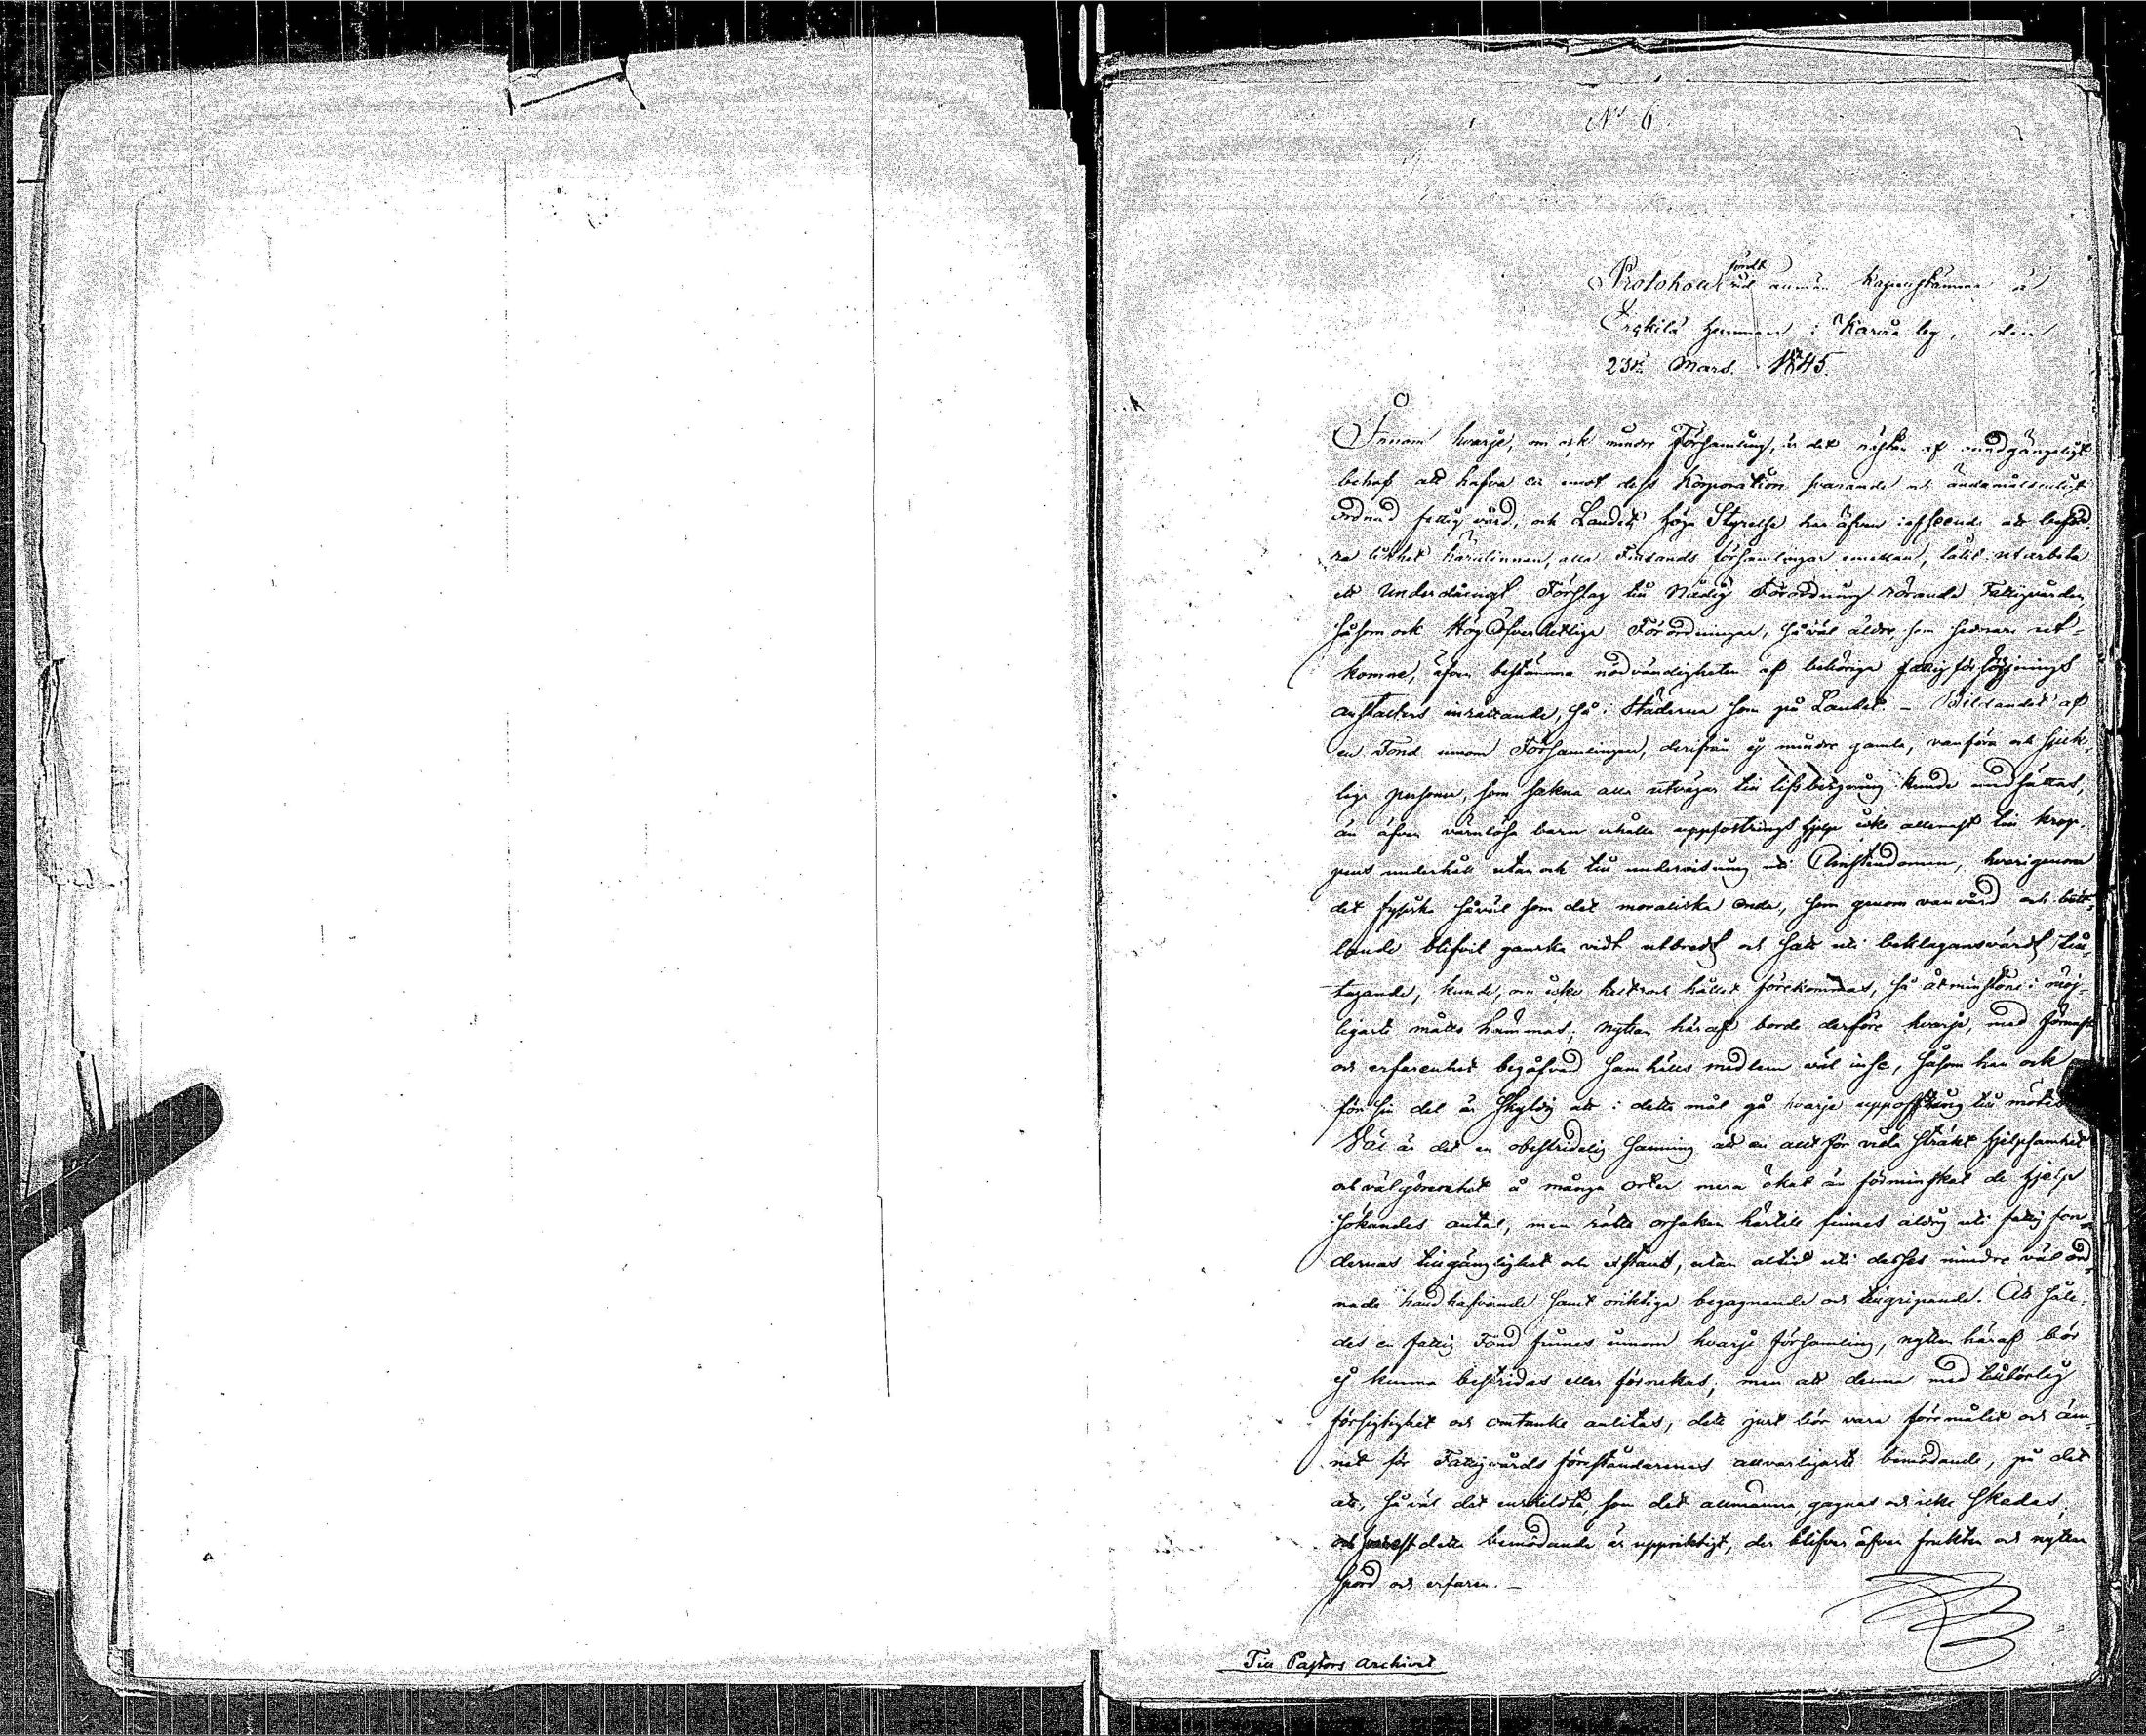 No 6
Protokoll fördt vid allmän Kapellstämma å
Erkkilä Hemman i Karna by, den
23dje Mars. 1845.
Innom hvarje, om ock mindre Församling, är det nästan af oundgängeligt
behof att hafva en emot dess Korporation svarande och ändamålsenligt
ordnad fattigvård, och Landets höga Styrelse har äfven i afseende att beford-
ra likhet härutinnan, alla Finlands församlingar emellan, låtit utarbeta
ett Underdånigt Förslag till Nådig Förordning rörande Fattigvården,
såsom ock HögÖfverhetliga Förordningar, såväl äldre som sednare ut-
komne, äfven bestämma nödvändigheten af behöriga fattigförsörjnings
anstalters inrättande, så i Städerna som på Landet. – Bildandet af
en Fond innom Församlingen, derifrån ej mindre gamla, vanföra och sjuk-
liga personer, som sakna alla utvägar till lifsbergning kunde undsättas,
än äfven värnlösa barn erhålla uppfostringshjelp icke allenast till krop-
pens underhåll utan ock till undervisning uti Christendomen, hvarigenom
det fysiska såväl som det moraliska onda, som genom vanvård och bett-
lande blifvit ganska vidt utbredt och satt uti beklagansvärdt till-
tagande, kunde, om icke helt och hållet förekommas, så åtminstone i möj-
ligaste måtto hämmas; nyttan häraf borde derföre hvarje, med förnuft
och erfarenhet begåfvad Samhälls medlem väl inse, såsom han ock
för sin del är skyldig att i detta mål gå hvarje uppoffring till mötes
Väl är det en obestridelig sanning att en allt för vida sträckt hjelpsamhet
och välgörenhet å många orter mera ökat än förminskat de hjelp
sökandes antal, men rätta orsaken härtill finnes aldrig uti fattig fon-
dernas tillgänglighet och existans, utan alltid uti desses mindre väl ord-
nade handhafvande samt oriktiga begagnande och tillgripande. Att såle-
des en fattig Fond finnes innom hvarje församling, nyttan häraf bör
ej kunna bestridas eller förnekas; men att denna med tillbörlig
försigtighet och omtanke anlitas, detta just bör vara föremålet och äm-
net för Fattigvårds föreståndarenes allvarligaste bemödande, på det
att, såväl det enskildta, som det allmänna, gagnas och icke skadas,
och hvarest detta bemödande är uppriktigt, der blifver äfven frukten och nyttan
spord och erfaren. –
Till Pastors Archivet